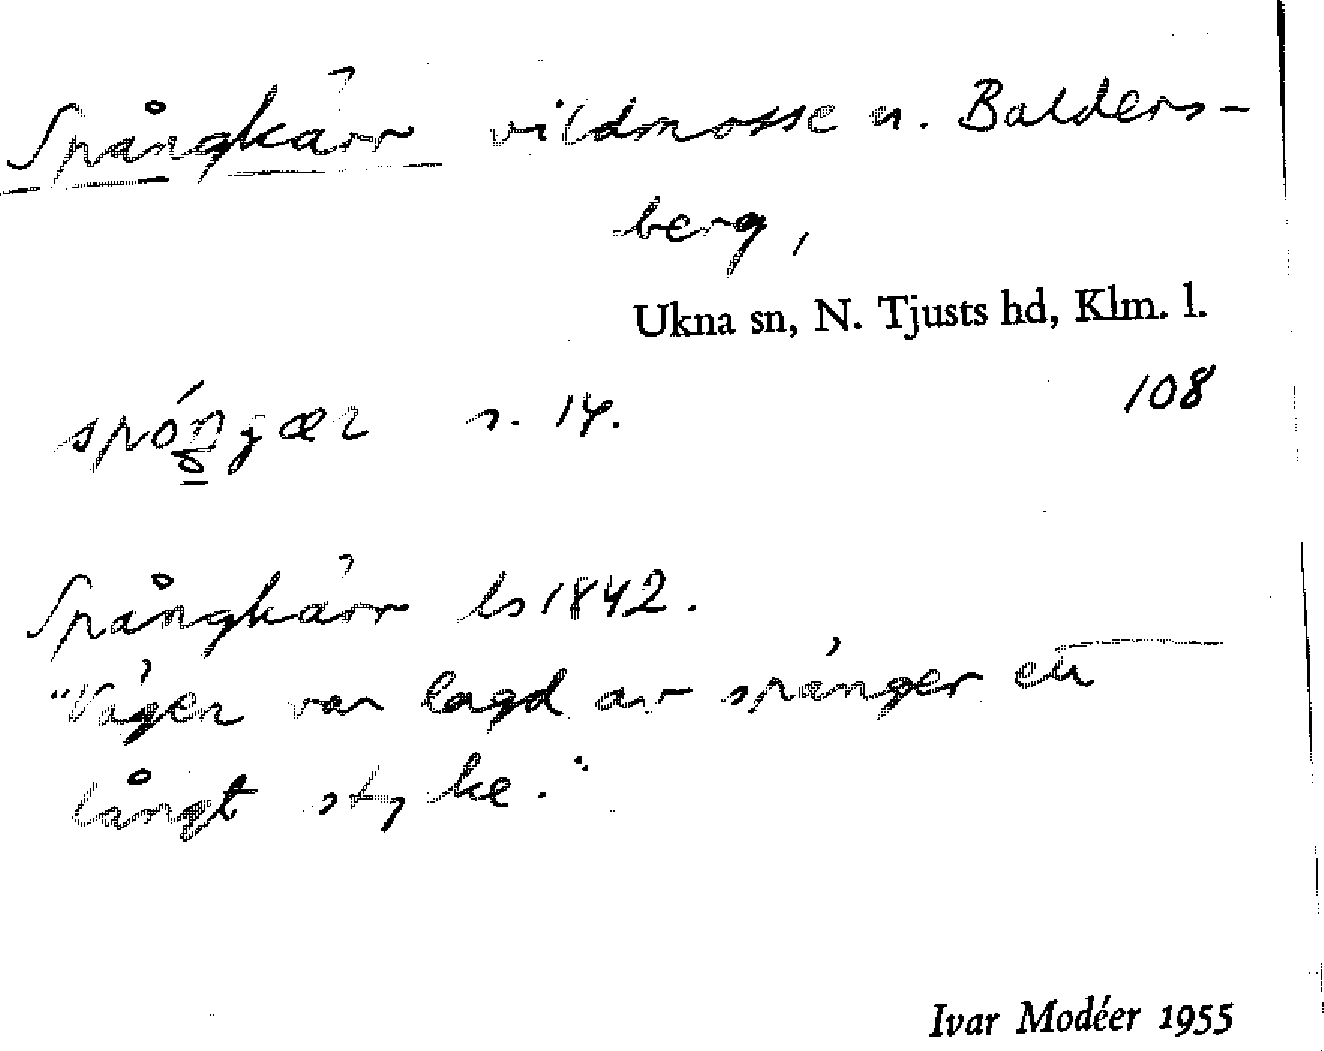 Spångkärr vildmosse n. Balders-
berg,
Ukna sn, N. Tjusts hd, Klm. l.
108
s. 14.
Spångkärr ls 1842.
"Vägen var lagd av spänger ett
långt styke."
Ivar Modéer 1955